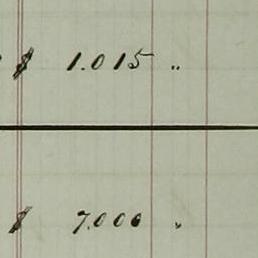 $ 1.015 "
$ 7.000 "